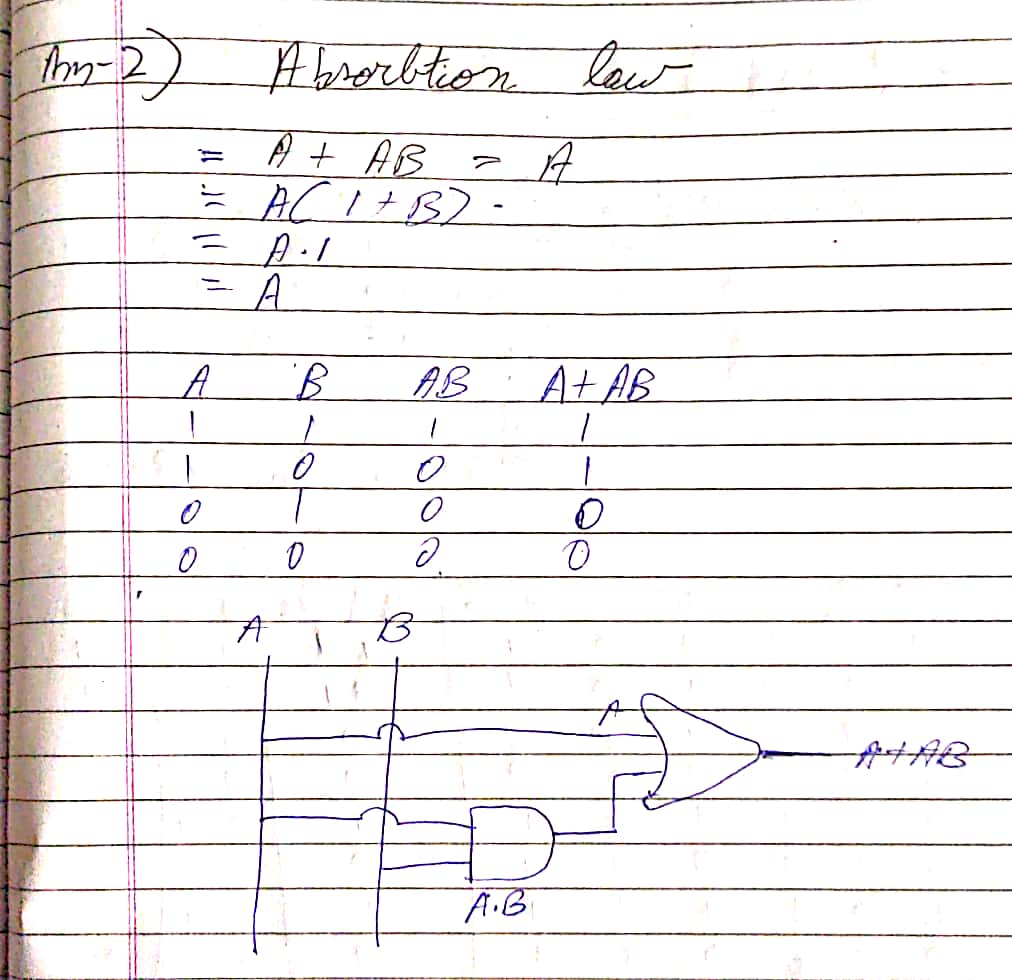 Ans-2) Absorbtion law
= A + AB = A
= A(1+B).
= A.1
= A
A B AB A+AB
1 1 1 1
1 0 0 1
0 1 0 0
0 0 0 0
A B
A
A+AB
A.B